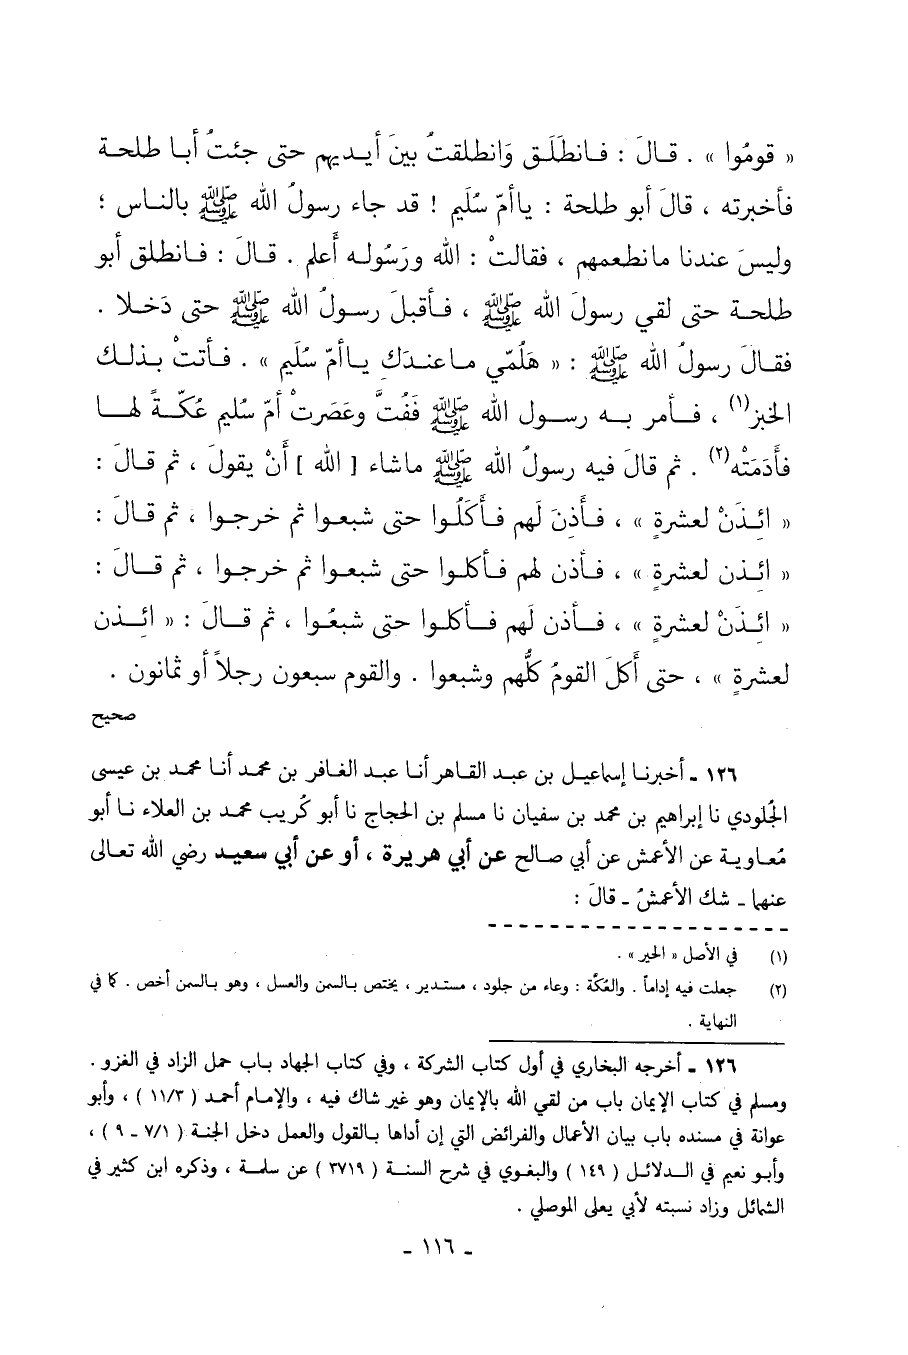 « قومُوا » . قـالَ : فـانطَلَق وَانطلقتُ بينَ أيـديهم حتى جئتُ أبـا طلحة
فأخبرته ، قالَ أبو طلحة : ياأمّ سُلَيم ! قد جاء رسولُ الله ﷺ بالنـاس ؛
وليسَ عندنا مانطعمهم ، فقالتْ : الله ورَسُولـه أَعلم . قـالَ : فـانطلق أبو
طلحـة حتى لقي رسولَ الله ﷺ ، فـأقبلَ رسـولُ الله ﷺ حتى دَخـلا .
فقـالَ رسولُ الله ﷺ : « هَلُمّي مـاعنـدَكِ يـاأمّ سُلَيم » . فـأتتْ بـذلـك
الخبز(١) ، فـأمر بـه رسـول الله ﷺ فَفُتَّ وعَصَرتْ أمّ سُليم عُكّـةً لهـا
فأَدَمَتْه(٢) . ثم قالَ فيه رسولُ الله ﷺ ماشاء [ الله ] أَنْ يقولَ ، ثم قـالَ :
« ائـذَنْ لعشرةٍ » ، فـأذِنَ لَهم فـأَكَلُوا حتى شبعـوا ثم خرجـوا ، ثم قـالَ :
« ائـذن لعشرةٍ » ، فـأذن لهم فـأكلـوا حتى شبعـوا ثم خرجـوا ، ثم قـالَ :
« ائـذَنْ لعشرةٍ » ، فـأذن لَهم فـأكلـوا حتى شبعُوا ، ثم قـالَ : « ائـذن
لعشرةٍ » ، حتى أَكلَ القومُ كلُّهم وشبعوا . والقوم سبعون رجلاً أو ثمانون .
صحيح
١٢٦ ـ أخبرنـا إسماعيـل بن عبـد القـاهر أنـا عبـد الغـافر بن محمـد أنـا محمـد بن عيسى
الجُلودي نا إبراهيم بن محمد بن سفيان نا مسلم بن الحجاج نا أبو كُريب محمد بن العلاء نـا أبو
مُعـاويـة عن الأعمش عن أبي صالح عن أبي هريرة ، أو عن أبي سعيـد رضي الله تعالى
عنهما ـ شك الأعمشُ ـ قالَ :
(١) في الأصل « الخير » .
(٢) جعلت فيه إداماً . والعُكّة : وعاء من جلود ، مستـدير ، يختص بـالسمن والعسل ، وهو بـالسمن أخص . كما في
النهاية .
١٢٦ ـ أخرجه البخاري في أول كتاب الشركة ، وفي كتاب الجهاد بـاب حمل الزاد في الغزو .
ومسلم في كتاب الإيمان باب من لقي الله بالإيمان وهو غير شاك فيه ، والإمـام أحمـد ( ١١/٣ ) ، وأبو
عوانة في مسنده باب بيان الأعمال والفرائض التي إن أداها بـالقول والعمل دخل الجنـة ( ٧/١ ـ ٩ ) ،
وأبـو نعيم في الـدلائـل ( ١٤٩ ) والبغـوي في شرح السنـة ( ٣٧١٩ ) عن سلمـة ، وذكره ابن كثير في
الشمائل وزاد نسبته لأبي يعلى الموصلي .
ـ ١١٦ ـ